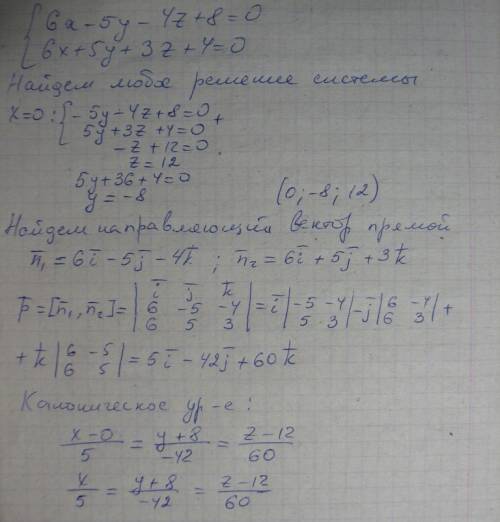 {6x - 5y - 4z + 8 = 0
{6x + 5y + 3z + 4 = 0
Найдем любое решение системы
x=0: {-5y - 4z + 8 = 0
5y + 3z + 4 = 0 +
-z + 12 = 0
z = 12
5y + 36 + 4 = 0
y = -8 (0; -8; 12)
Найдем направляющий вектор прямой
n̄₁ = 6ī - 5j̄ - 4k̄ ; n̄₂ = 6ī + 5j̄ + 3k̄
p̄ = [n̄₁, n̄₂] = |ī j̄ k̄; 6 -5 -4; 6 5 3| = ī |-5 -4; 5 3| - j̄ |6 -4; 6 3| +
+ k̄ |6 -5; 6 5| = 5ī - 42j̄ + 60k̄
Каноническое ур-е:
(x-0)/5 = (y+8)/-42 = (z-12)/60
x/5 = (y+8)/-42 = (z-12)/60